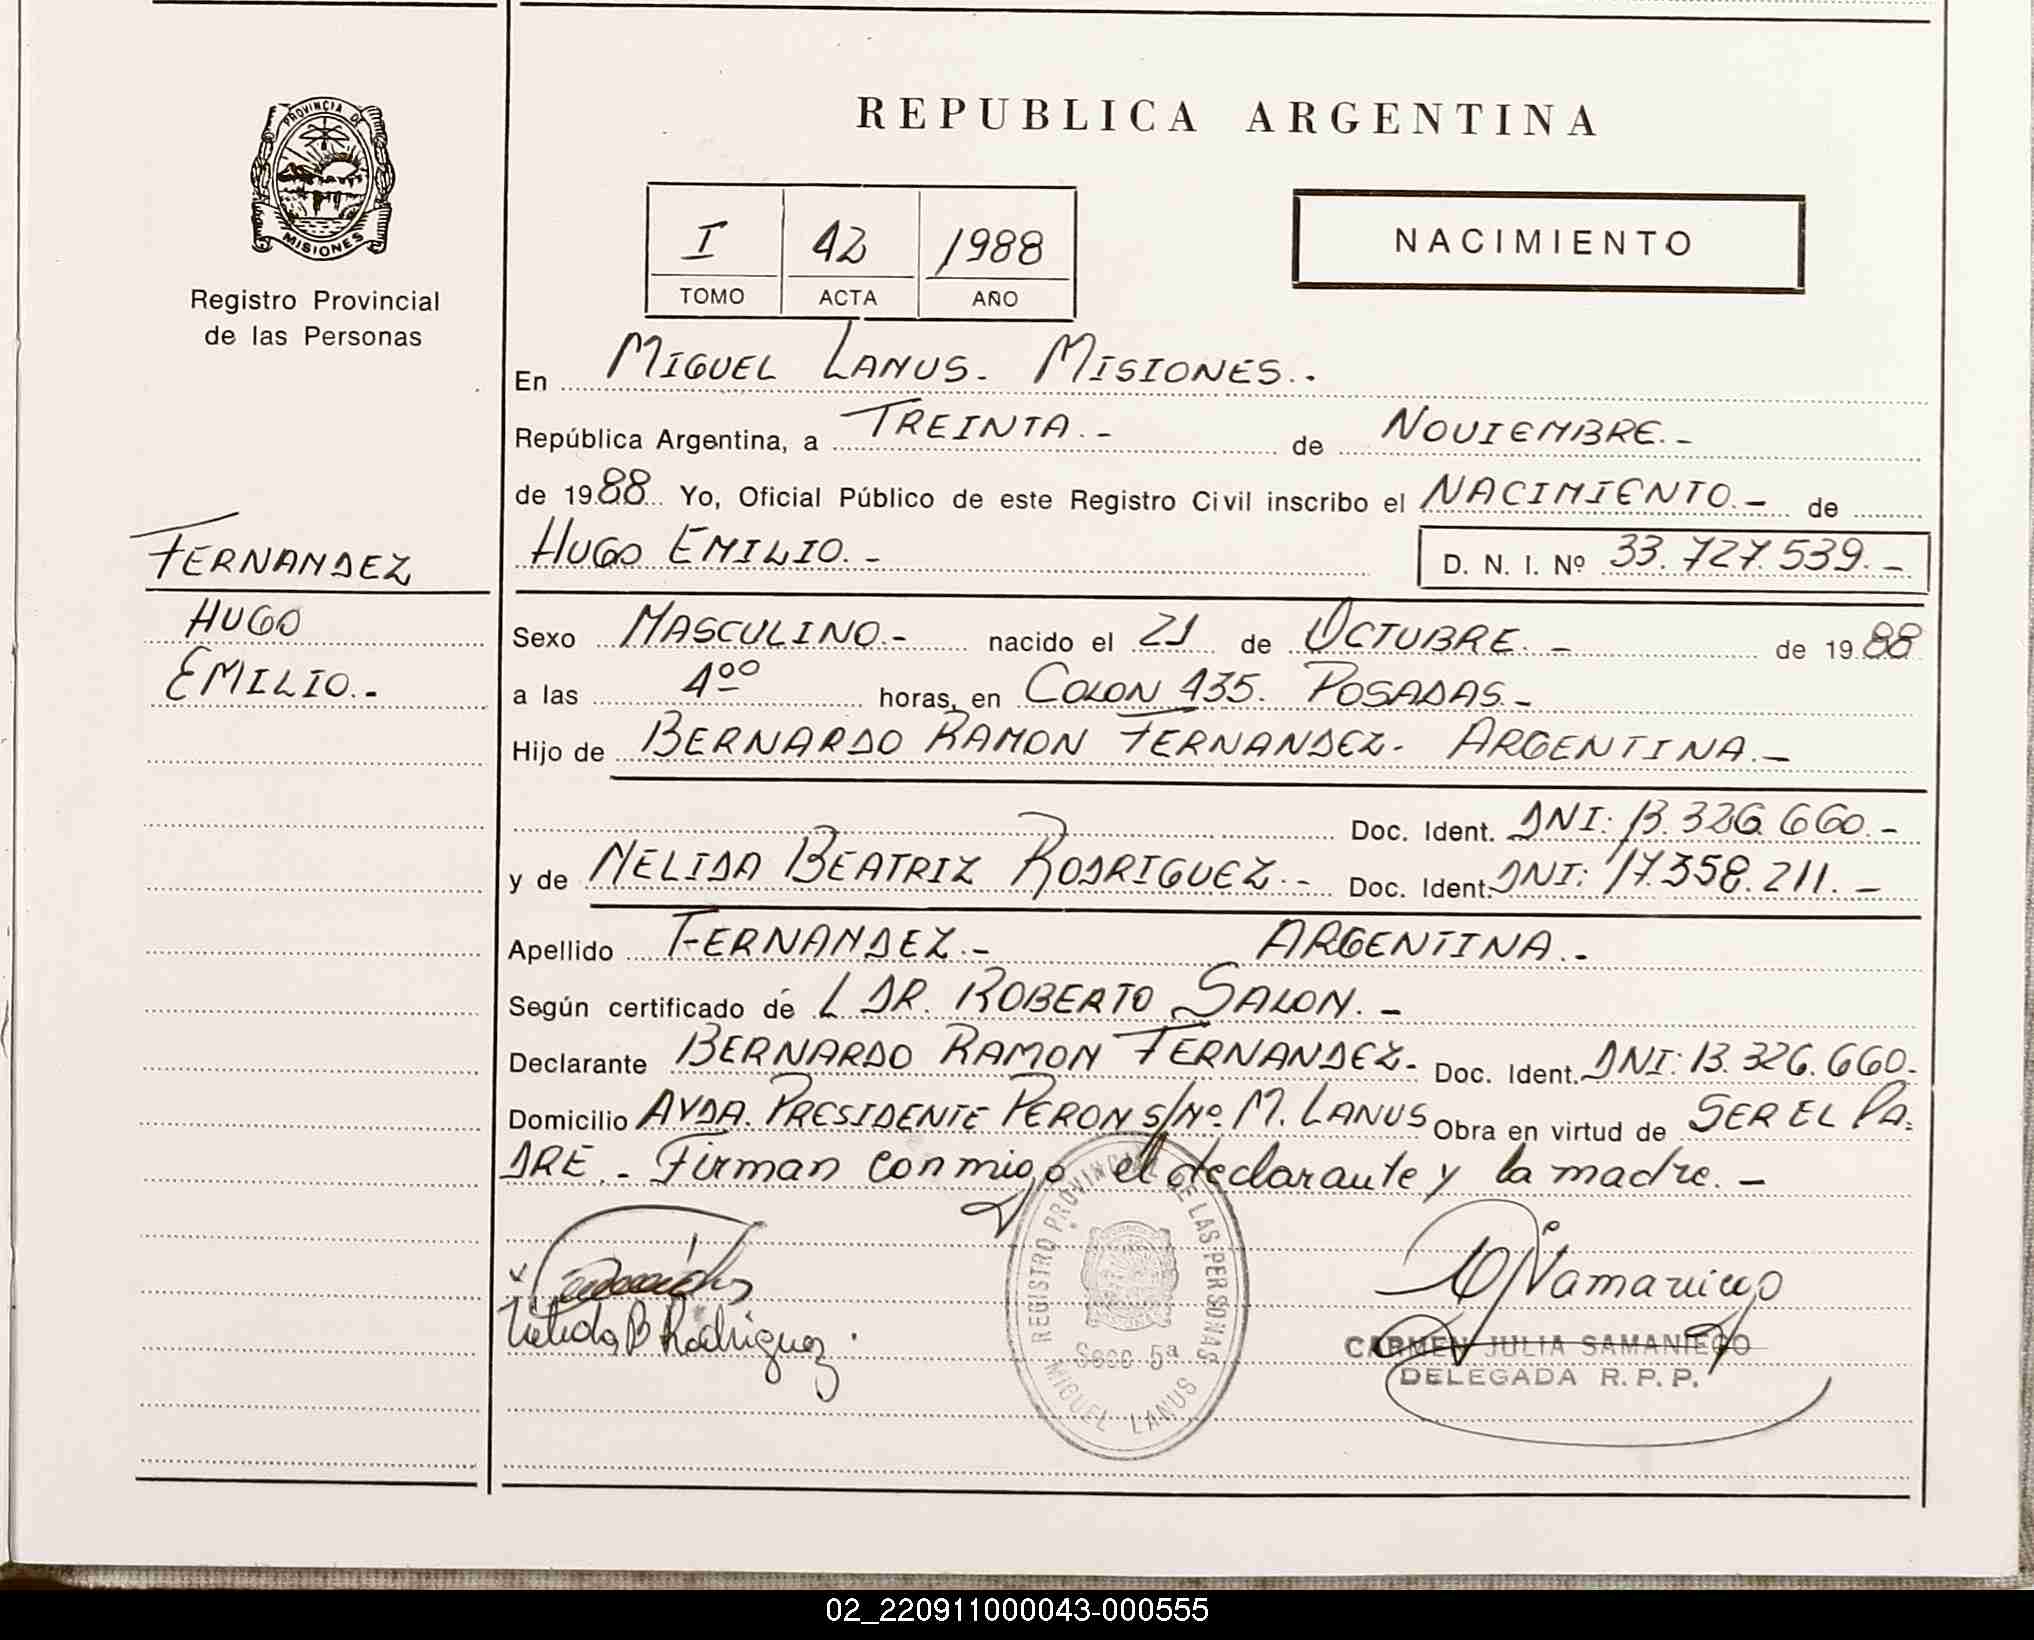 PROVINCIA DE
MISIONES
Registro Provincial
de las Personas
FERNANDEZ
HUGO
EMILIO.-
REPUBLICA ARGENTINA
I 42 1988
TOMO ACTA AÑO
NACIMIENTO
En MIGUEL LANUS- MISIONES.-
República Argentina, a TREINTA.- de NOVIEMBRE.-
de 1988 Yo, Oficial Público de este Registro Civil inscribo el NACIMIENTO.- de
HUGO EMILIO.- D. N. I. Nº 33.727.539.-
Sexo MASCULINO.- nacido el 21 de OCTUBRE.- de 1988
a las 4ºº horas, en COLON 435. POSADAS.-
Hijo de BERNARDO RAMON FERNANDEZ- ARGENTINA.-
Doc. Ident. DNI: 13.326.660.-
y de NELIDA BEATRIZ RODRIGUEZ.- Doc. Ident. DNI: 17.358.211.-
Apellido FERNANDEZ.- ARGENTINA.-
Según certificado de L DR. ROBERTO SALON.-
Declarante BERNARDO RAMON FERNANDEZ- Doc. Ident. DNI: 13.326.660-
Domicilio AVDA. PRESIDENTE PERON S/Nº M. LANUS Obra en virtud de SER EL PA-
DRE.- Firman conmigo el declarante y la madre.-
REGISTRO PROVINCIAL DE LAS PERSONAS
Secc 5ª
MIGUEL LANUS
Nelida B Rodriguez.
CARMEN JULIA SAMANIEGO
DELEGADA R.P.P.
02_220911000043-000555